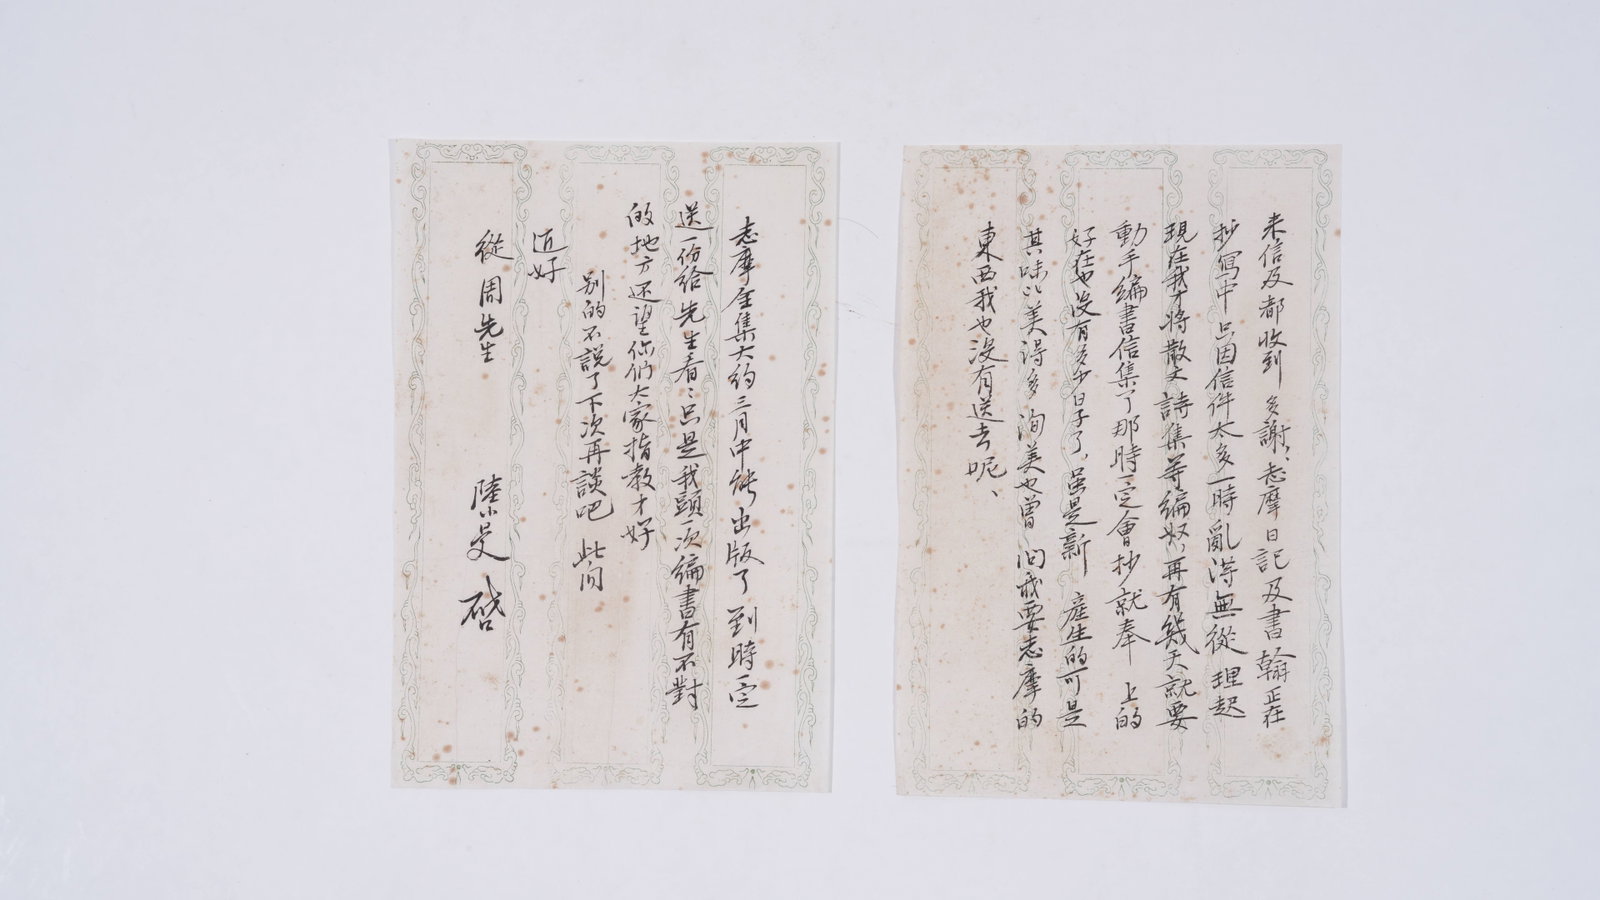 来信及都收到 多謝：志摩日記及書翰正在
抄寫中只因信件太多一時亂得無從理起
現在我才將散文詩集等編好，再有幾天就要
動手編書信集了那時一定會抄就奉 上的
好在也沒有多少日子了，虽是新 產生的可是
其味比美得多 洵美也曾 问我要志摩的
東西我也沒有送去呢、
志摩全集大約三月中能出版了 到時一定
送一份給先生看：只是我頭一次編書有不對
的地方还望你們大家指教才好
别的不説了下次再談吧 此问
近好
從周先生
陸小曼 啓